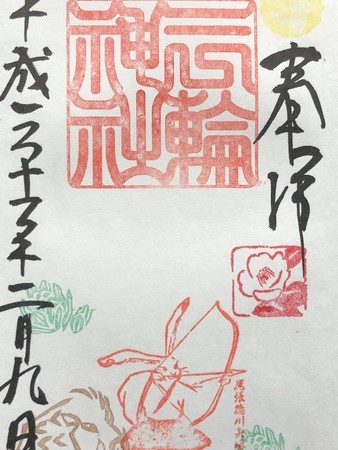 奉拝
三輪神社
平成三十一年二月九日
尾張徳川